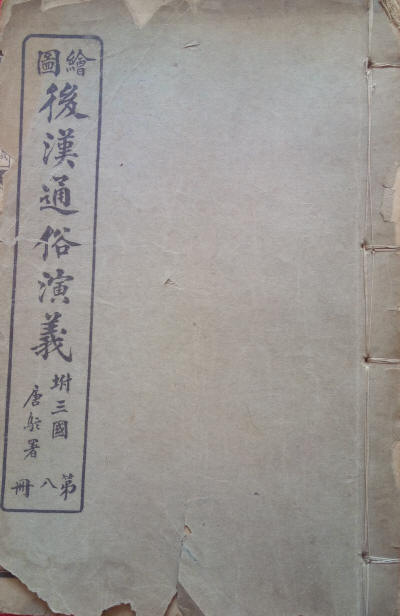 繪圖
後漢通俗演義
坿三國
唐駝署
第八冊